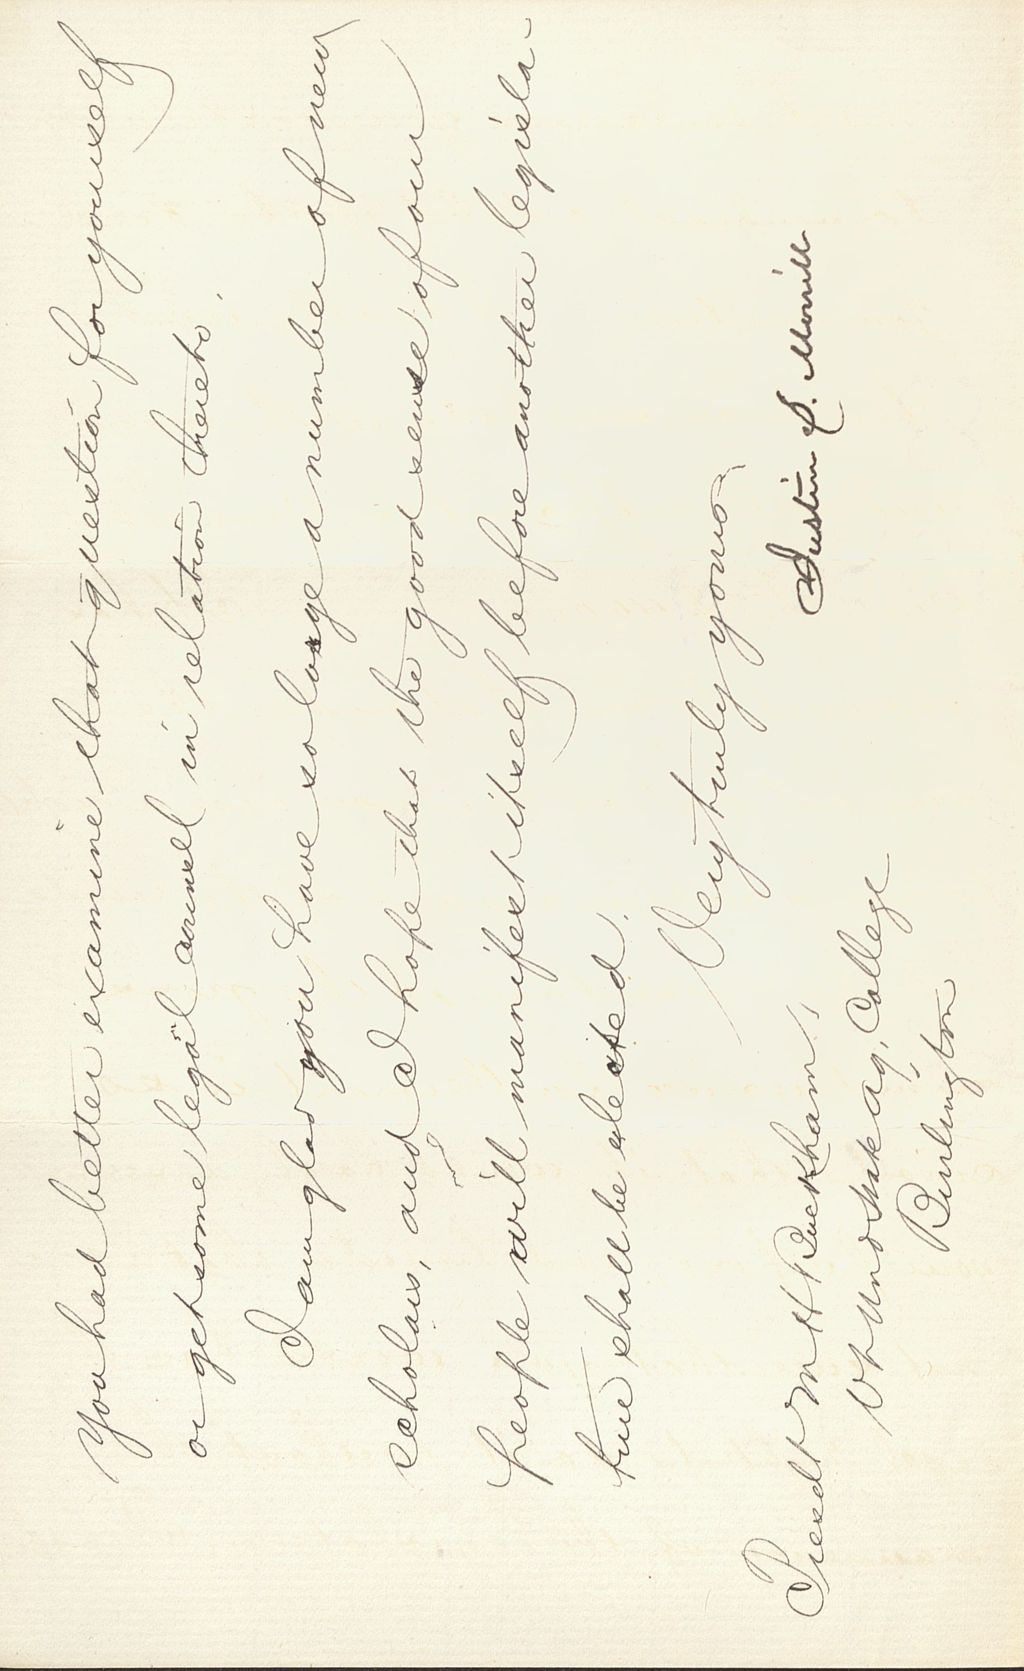 you had better examine that question for yourself
or get some legal counsel in relation thereto.
I am glad you have so large a number of new
scholars, and I hope that the good sense of our
people will manifest itself before another legisla-
ture shall be elected.
Very truly yours
Justin S. Morrill
Presdt M H Buckham,
Vt Und Stat Ag, College
Burlington